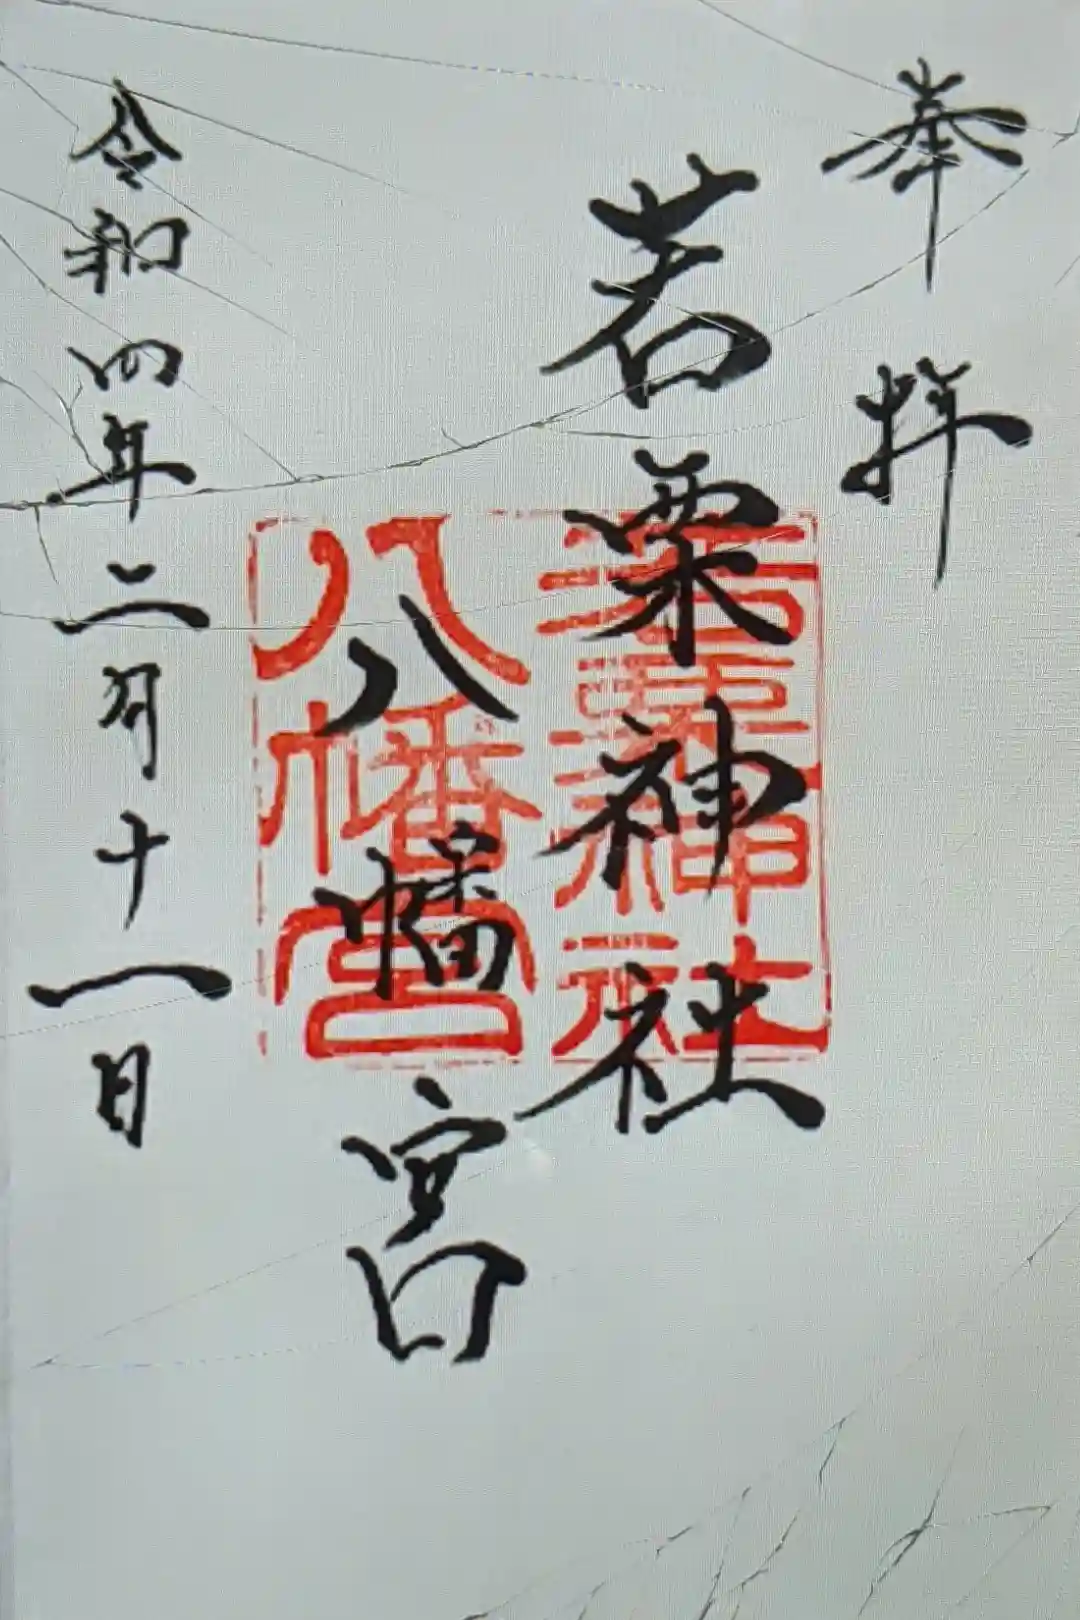 奉拝
若栗神社
八幡宮
令和四年二月十一日
若栗神社
八幡宮